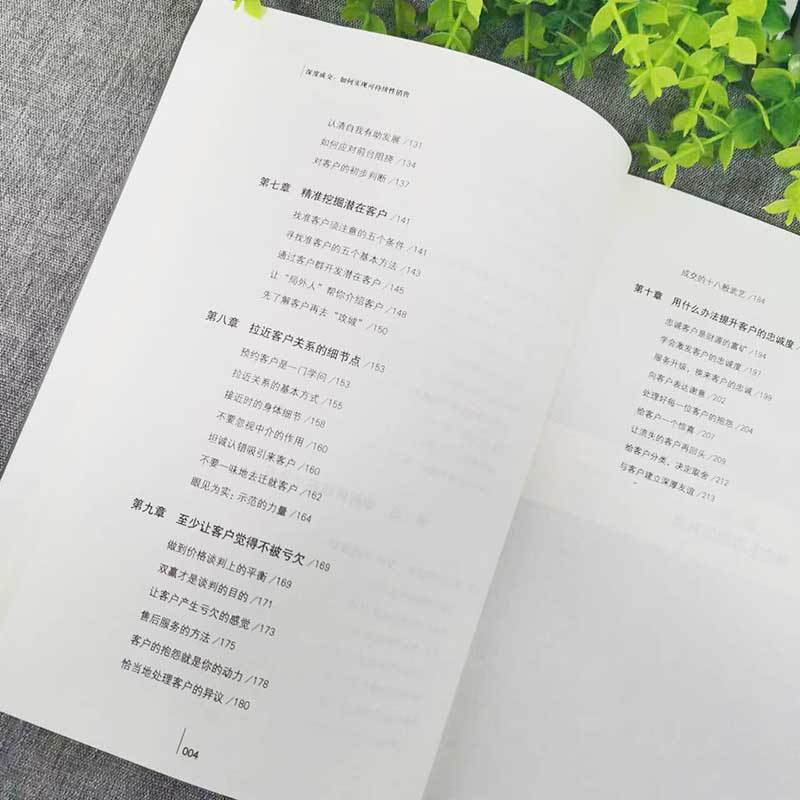 深度成交:如何实现可持续性销售
认清自我有助发展 /131
如何应对前台阻挠 /134
对客户的初步判断 /137
第七章 精准挖掘潜在客户 /141
找准客户须注意的五个条件 /141
寻找准客户的五个基本方法 /143
通过客户群开发潜在客户 /145
让“局外人”帮你介绍客户 /148
先了解客户再去“攻城” /150
第八章 拉近客户关系的细节点 /153
预约客户是一门学问 /153
拉近关系的基本方式 /155
接近时的身体细节 /158
不要忽视中介的作用 /160
坦诚认错吸引来客户 /160
不要一味地去迁就客户 /162
眼见为实:示范的力量 /164
第九章 至少让客户觉得不被亏欠 /169
做到价格谈判上的平衡 /169
双赢才是谈判的目的 /171
让客户产生亏欠的感觉 /173
售后服务的方法 /175
客户的抱怨就是你的动力 /178
恰当地处理客户的异议 /180
004
成交的十八般武艺 /184
第十章 用什么办法提升客户的忠诚度 /
忠诚客户是财源的富矿 /194
学会激发客户的忠诚度 /197
服务升级,换来客户的忠诚 /199
向客户表达谢意 /202
处理好每一位客户的抱怨 /204
给客户一个惊喜 /207
让流失的客户再回头 /209
给客户分类,决定取舍 /212
与客户建立深厚友谊 /213